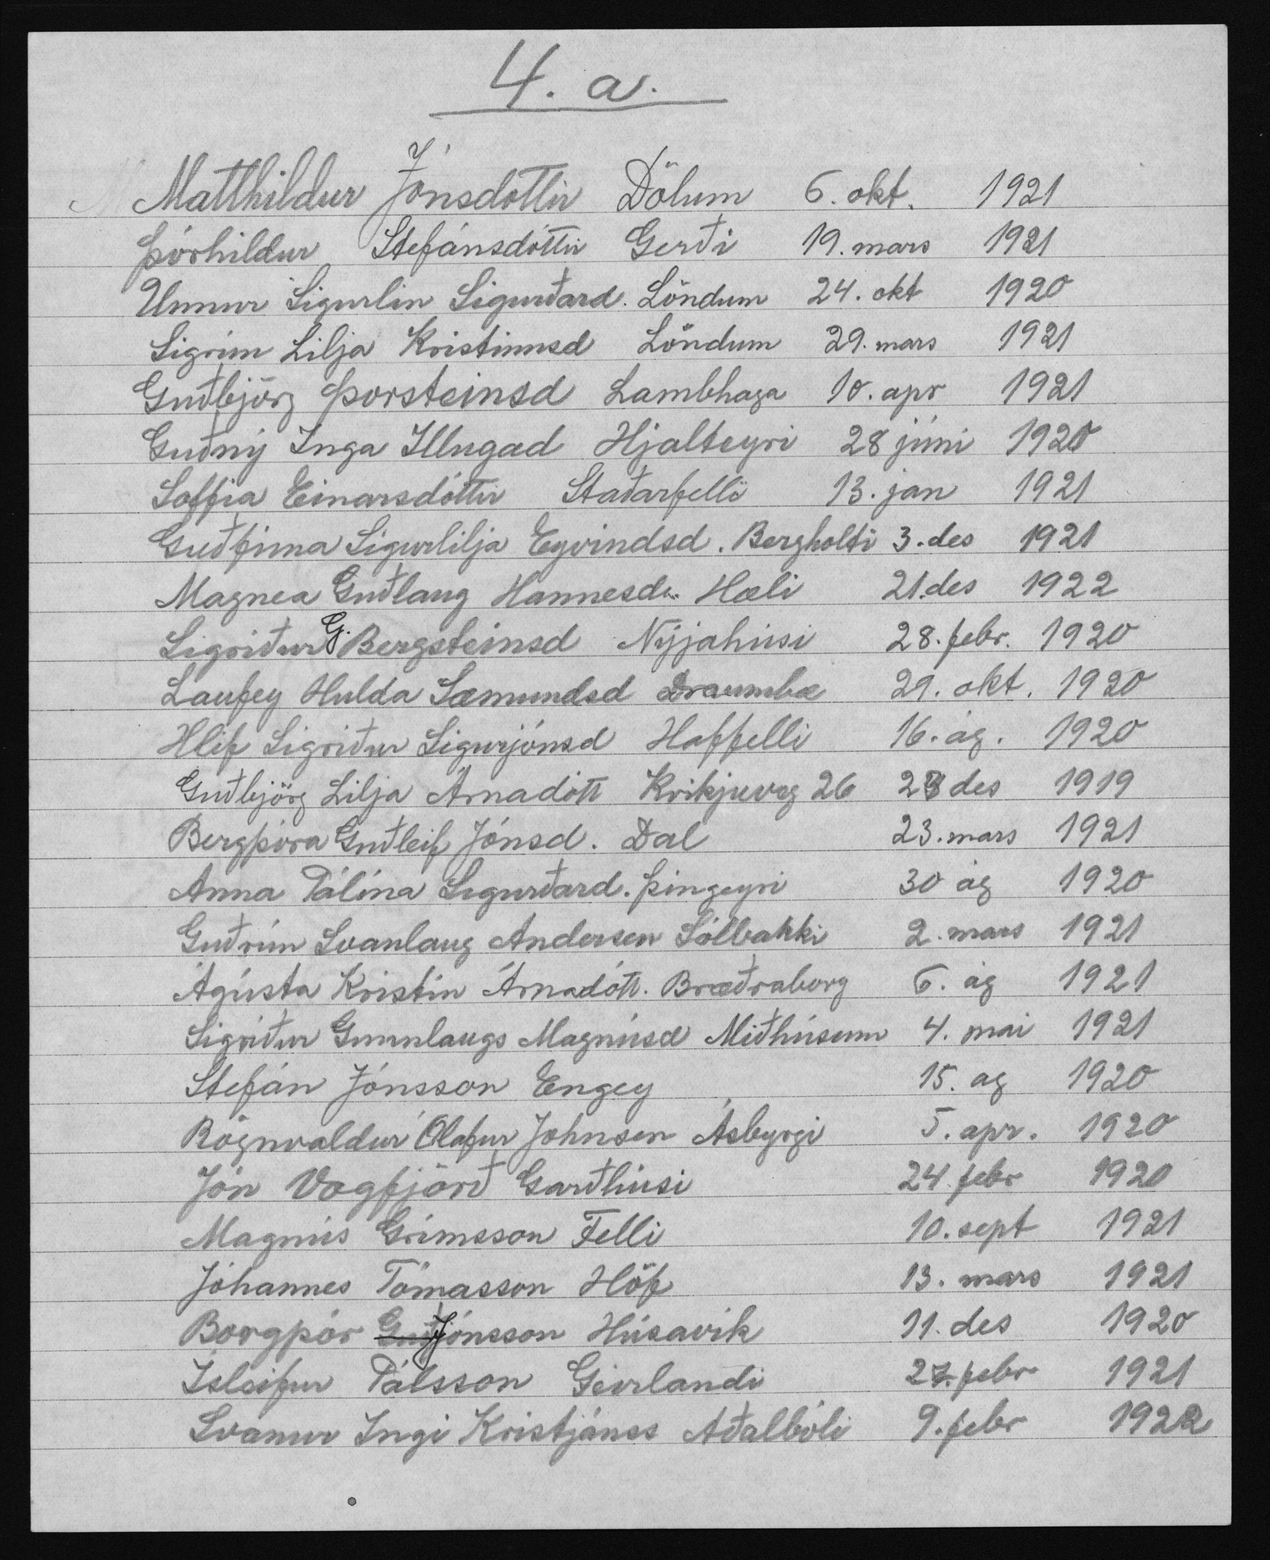 4. a.
Matthildur Jónsdóttir Dölum 6. okt. 1921
Þórhildur Stefánsdóttir Gerði 19. mars 1921
Unnur Sigurlín Sigurðard. Löndum 24. okt 1920
Sigrún Lilja Kristinnsd Löndum 29. mars 1921
Guðbjörg Þorsteinsd Lambhaga 10. apr 1921
Guðný Inga Illugad Hjalteyri 28 júní 1920
Soffía Einarsdóttir Staðarfelli 13. jan 1921
Guðfinna Sigurlilja Eyvindsd. Bergholti 3. des 1921
Magnea Guðlaug Hannesd. Hæli 21. des 1922
Sigríður G. Bergsteinsd Nýjahúsi 28. febr. 1920
Laufey Hulda Sæmundsd Draumbæ 29. okt. 1920
Hlíf Sigríður Sigurjónsd Haffelli 16. ág. 1920
Guðbjörg Lilja Árnadótt Krikjuveg 26 des 1919
Bergþóra Guðleif Jónsd. Dal 23. mars 1921
Anna Pálína Sigurðard. Þingeyri 30 ág 1920
Guðrún Svanlaug Andersen Sólbakki 2. mars 1921
Ágústa Kristín Árnadótt. Bræðraborg 6. ág 1921
Sigríður Gunnlaugs Magnúsd Miðhúsum 4. maí 1921
Stefán Jónsson Engey 15. ág 1920
Rögnvaldur Ólafur Johnsen Ásbyrgi 5. apr. 1920
Jón Vogfjörð Garðhúsi 24. febr 1920
Magnús Grímsson Felli 10. sept 1921
Jóhannes Tómasson Höf 13. mars 1921
Borgþór Guð Jónsson Húsavík 11. des 1920
Ísleifur Pálsson Geirlandi 27. febr 1921
Svanur Ingi Kristjánss Aðalbóli 9. febr 1922